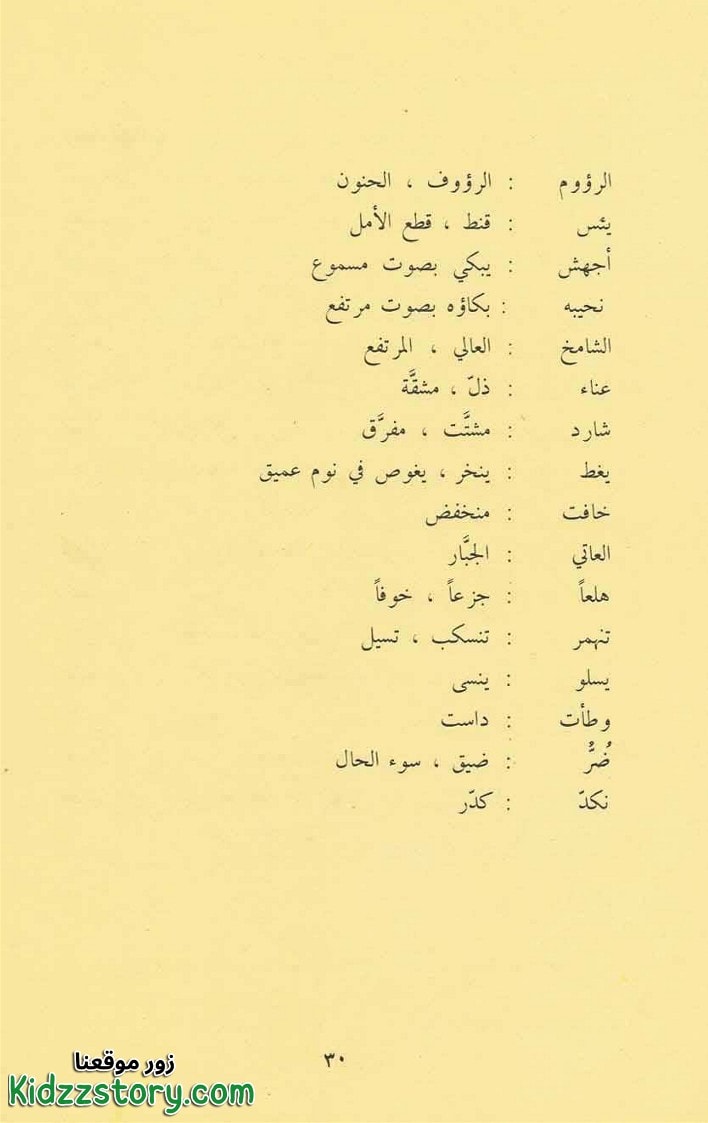 الرؤوم : الرؤوف ، الحنون
يئس : قنط ، قطع الأمل
أجهش : يبكي بصوت مسموع
نحيبه : بكاؤه بصوت مرتفع
الشامخ : العالي ، المرتفع
عناء : ذلّ ، مشقَّة
شارد : مشتَّت ، مفرَّق
يغط : ينخر ، يغوص في نوم عميق
خافت : منخفض
العاتي : الجبَّار
هلعاً : جزعاً ، خوفاً
تنهمر : تنسكب ، تسيل
يسلو : ينسى
وطأت : داست
ضُرُّ : ضيق ، سوء الحال
نكدّ : كدّر
٣٠
زور موقعنا
Kidzzstory.com